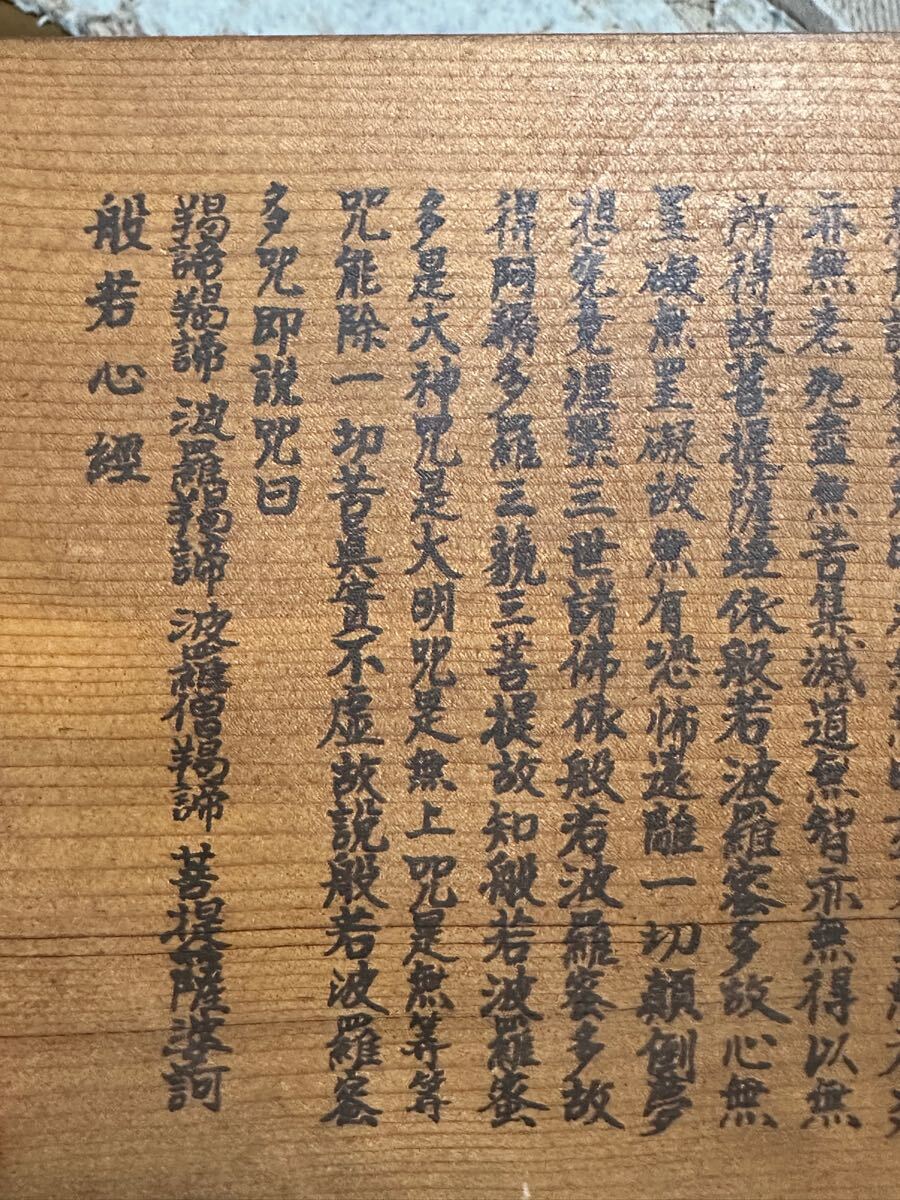 亦無老死盡無苦集滅道無智亦無得以無
所得故菩提薩埵依般若波羅蜜多故心無
罣礙無罣礙故無有恐怖遠離一切顛倒夢
想究竟涅槃三世諸佛依般若波羅蜜多故
得阿耨多羅三藐三菩提故知般若波羅蜜
多是大神咒是大明咒是無上咒是無等等
咒能除一切苦真實不虛故說般若波羅蜜
多咒即說咒曰
羯諦羯諦 波羅羯諦 波羅僧羯諦 菩提薩婆訶
般若心經